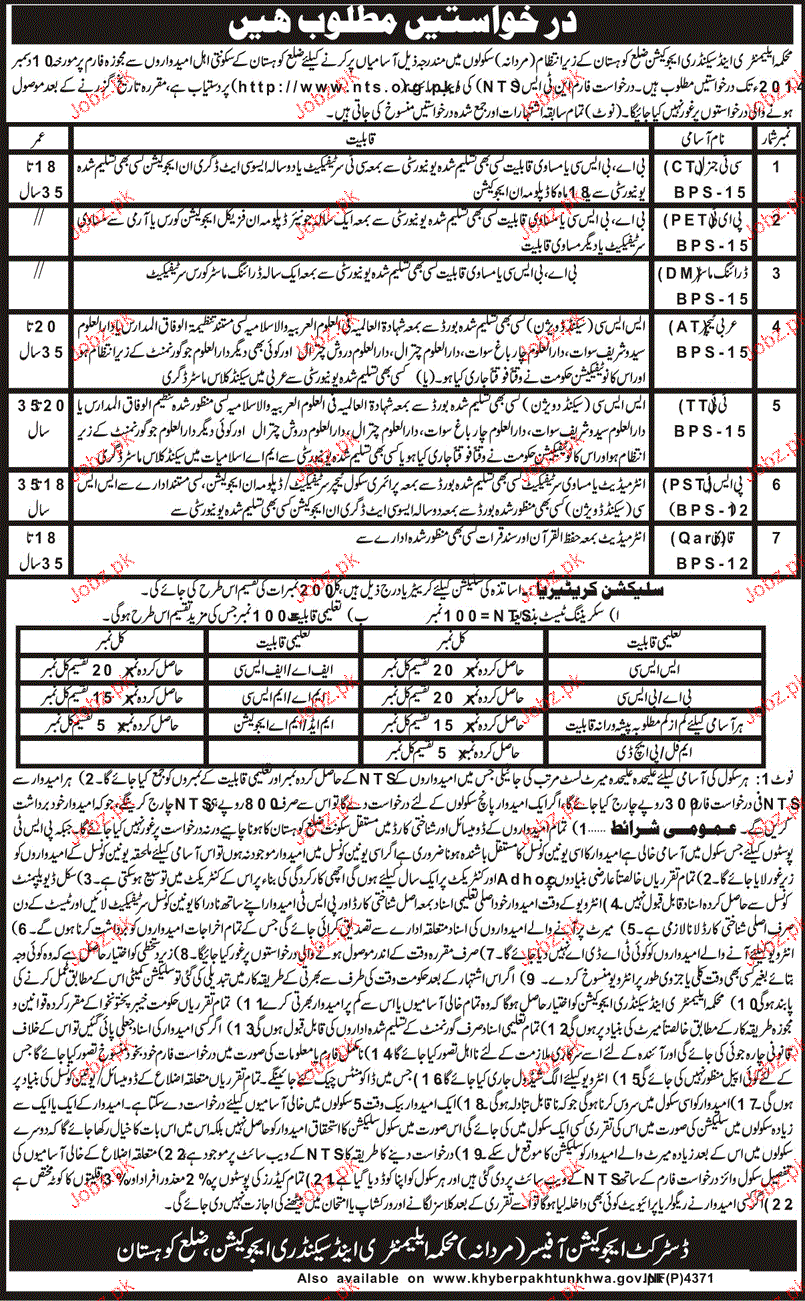 درخواستیں مطلوب ہیں
محکمہ ایلیمنٹری اینڈ سیکنڈری ایجوکیشن ضلع کوہستان کے زیر انتظام (مردانہ) سکولوں میں مندرجہ ذیل آسامیاں پر کرنے کیلئے ضلع کوہستان کے سکونتی اہل امیدواروں سے مجوزہ فارم پر مورخہ 10 دسمبر
2014 تک درخواستیں مطلوب ہیں۔ درخواست فارم این ٹی ایس (NTS) کی ویب سائٹ (http://www.nts.org.pk) پر دستیاب ہے، مقررہ تاریخ گزرنے کے بعد موصول
ہونے والی درخواستوں پر غور نہیں کیا جائیگا۔ (نوٹ) تمام سابقہ اشتہارات اور جمع شدہ درخواستیں منسوخ کی جاتی ہیں۔
نمبر شمار نام آسامی قابلیت عمر
1 سی ٹی جنرل (CT) بی اے، بی ایس سی یا مساوی قابلیت کسی بھی تسلیم شدہ یونیورسٹی سے بمعہ سی ٹی سرٹیفکیٹ یا دو سالہ ایسوسی ایٹ ڈگری ان ایجوکیشن کسی بھی تسلیم شدہ 18 تا
BPS-15 یونیورسٹی سے یا 18 ماہ کا ڈپلومہ ان ایجوکیشن 35 سال
2 پی ای ٹی (PET) بی اے، بی ایس سی یا مساوی قابلیت کسی بھی تسلیم شدہ یونیورسٹی سے بمعہ ایک سالہ جونیئر ڈپلومہ ان فزیکل ایجوکیشن کورس یا آرمی سے مساوی //
BPS-15 سرٹیفکیٹ یا دیگر مساوی قابلیت
3 ڈرائنگ ماسٹر (DM) بی اے، بی ایس سی یا مساوی قابلیت کسی بھی تسلیم شدہ یونیورسٹی سے بمعہ ایک سالہ ڈرائنگ ماسٹر کورس سرٹیفکیٹ //
BPS-15
4 عربی ٹیچر (AT) ایس ایس سی (سیکنڈ ڈویژن) کسی بھی تسلیم شدہ بورڈ سے بمعہ شہادۃ العالمیہ فی العلوم العربیہ والاسلامیہ کسی مستند تنظیمۃ الوفاق المدارس یا دارالعلوم 20 تا
BPS-15 سیدو شریف سوات، دارالعلوم چارباغ سوات، دارالعلوم چترال، دارالعلوم دروش چترال اور کوئی بھی دیگر دارالعلوم جو گورنمنٹ کے زیر انتظام ہو 35 سال
اور اس کا نوٹیفکیشن حکومت نے وقتاً فوقتاً جاری کیا ہو۔ (یا) کسی بھی تسلیم شدہ یونیورسٹی سے عربی میں سیکنڈ کلاس ماسٹر ڈگری
5 ٹی ٹی (TT) ایس ایس سی (سیکنڈ ڈویژن) کسی بھی تسلیم شدہ بورڈ سے بمعہ شہادۃ العالمیہ فی العلوم العربیہ والاسلامیہ کسی منظور شدہ تنظیم الوفاق المدارس یا 20 تا 35
BPS-15 دارالعلوم سیدو شریف سوات، دارالعلوم چارباغ سوات، دارالعلوم چترال، دارالعلوم دروش چترال اور کوئی دیگر دارالعلوم جو گورنمنٹ کے زیر سال
انتظام ہو اور اس کا نوٹیفکیشن حکومت نے وقتاً فوقتاً جاری کیا ہو یا کسی بھی تسلیم شدہ یونیورسٹی سے ایم اے اسلامیات میں سیکنڈ کلاس ماسٹر ڈگری
6 پی ایس ٹی (PST) انٹرمیڈیٹ یا مساوی سرٹیفکیٹ کسی بھی تسلیم شدہ بورڈ سے بمعہ پرائمری سکول ٹیچر سرٹیفکیٹ/ڈپلومہ ان ایجوکیشن، کسی مستند ادارے سے ایس ایس 18 تا 35
(BPS-12 سی (سیکنڈ ڈویژن) کسی بھی منظور شدہ بورڈ سے بمعہ دو سالہ ایسوسی ایٹ ڈگری ان ایجوکیشن کسی بھی تسلیم شدہ یونیورسٹی سے سال
7 قاری (Qari) انٹرمیڈیٹ بمعہ حفظ القرآن اور سند قرات کسی بھی منظور شدہ ادارے سے 18 تا
BPS-12 35 سال
سلیکشن کریٹیریا۔ اساتذہ کی سلیکشن کیلئے کریٹیریا درج ذیل ہیں، کل 200 نمبرات کی تقسیم اس طرح کی جائے گی۔
ا) سکریننگ ٹیسٹ بذریعہ NTS=100 نمبر ب) تعلیمی قابلیت=100 نمبر جس کی مزید تقسیم اس طرح ہوگی۔
تعلیمی قابلیت کل نمبر تعلیمی قابلیت کل نمبر
ایس ایس سی حاصل کردہ نمبر x 20 تقسیم کل نمبر ایف اے/ایف ایس سی حاصل کردہ نمبر x 20 تقسیم کل نمبر
بی اے/بی ایس سی حاصل کردہ نمبر x 20 تقسیم کل نمبر ایم اے/ایم ایس سی حاصل کردہ نمبر x 15 تقسیم کل نمبر
ہر آسامی کیلئے کم از کم مطلوبہ پیشہ ورانہ قابلیت حاصل کردہ نمبر x 15 تقسیم کل نمبر ایم ایڈ/ایم اے ایجوکیشن حاصل کردہ نمبر x 5 تقسیم کل نمبر
ایم فل/پی ایچ ڈی حاصل کردہ نمبر x 5 تقسیم کل نمبر
نوٹ 1: ہر سکول کی آسامی کیلئے علیحدہ علیحدہ میرٹ لسٹ مرتب کی جائیگی جس میں امیدواروں کے NTS کے حاصل کردہ نمبر اور تعلیمی قابلیت کے نمبروں کو جمع کیا جائے گا۔ 2) ہر امیدوار سے
NTS فی درخواست فارم 300 روپے چارج کیا جائے گا، اگر ایک امیدوار پانچ سکولوں کے لئے درخواست دے گا تو اس سے صرف 800 روپے NTS چارج کریگے، جو کہ امیدوار خود برداشت
کریں گے۔ عمومی شرائط .....1) تمام امیدواروں کے ڈومیسائل اور شناختی کارڈ میں مستقل سکونت ضلع کوہستان کا ہونا چاہیے ورنہ درخواست پر غور نہیں کیا جائیگا۔ جبکہ پی ایس ٹی
پوسٹوں کیلئے جس سکول میں آسامی خالی ہے امیدوار کا اسی یونین کونسل کا مستقل باشندہ ہونا ضروری ہے اگر اسی یونین کونسل میں امیدوار موجود نہ ہوں تو اس آسامی کیلئے ملحقہ یونین کونسل کے امیدواروں کو
زیر غور لایا جائے گا۔ 2) تمام تقرریاں خالصتاً عارضی بنیادوں پر Adhoc اور کنٹریکٹ پر ایک سال کیلئے ہوں گی اچھی کارکردگی کی بناء پر اس کے کنٹریکٹ میں توسیع ہو سکتی ہے۔ 3) سکل ڈویلپمنٹ
کونسل سے حاصل کردہ اسناد قابل قبول نہیں۔ 4) انٹرویو کے وقت امیدوار خود اصل تعلیمی اسناد بمعہ اصل شناختی کارڈ اور پی ایس ٹی امیدوار اپنے ساتھ نادرا کا یونین کونسل سرٹیفکیٹ لائیں اور ٹیسٹ کے دن
صرف اصلی شناختی کارڈ لانا لازمی ہے۔ 5) میرٹ پر آنے والے امیدواروں کی اسناد متعلقہ ادارے سے تصدیق کرائی جائے گی جس کے تمام اخراجات امیدواروں کو برداشت کرنا ہوں گے۔ 6)
انٹرویو کیلئے آنے والے امیدواروں کو کوئی ٹی اے ڈی اے نہیں دیا جائے گا۔ 7) صرف مقررہ وقت کے اندر موصول ہونے والی درخواستوں پر غور کیا جائے گا۔ 8) زیر دستخطی کو اختیار حاصل ہے کہ وہ کوئی وجہ
بتائے بغیر کسی بھی وقت کلی یا جزوی طور پر انٹرویو منسوخ کر دے۔ 9) اگر اس اشتہار کے بعد حکومت وقت کی طرف سے بھرتی کے طریقہ کار میں تبدیلی کی گئی تو سلیکشن کمیٹی اس کے مطابق عمل کرنے کی
پابند ہوگی 10) محکمہ ایلیمنٹری اینڈ سیکنڈری ایجوکیشن کو اختیار حاصل ہوگا کہ وہ تمام خالی آسامیوں یا اس سے کم پر امیدوار بھرتی کرے 11) تمام تقرریاں حکومت خیبر پختونخوا کے مقرر کردہ قوانین و
مجوزہ طریقہ کار کے مطابق خالصتاً میرٹ کی بنیاد پر ہوں گی 12) تمام تعلیمی اسناد صرف گورنمنٹ کے تسلیم شدہ اداروں کی قابل قبول ہوں گی 13) اگر کسی امیدوار کی اسناد جعلی پائی گئیں تو اس کے خلاف
قانونی چارہ جوئی کی جائے گی اور آئندہ کے لئے اسے سرکاری ملازمت کے لئے نااہل تصور کیا جائے گا 14) نامکمل فارم یا معلومات کی صورت میں درخواست فارم خود بخود منسوخ تصور کیا جائے گا جس
کے لئے کوئی اپیل منظور نہیں کی جائے گی 15) انٹرویو کیلئے الگ شیڈول جاری کیا جائے گا 16) جس میں ڈاکومنٹس چیک کئے جائینگے۔ تمام تقرریاں متعلقہ اضلاع کے ڈومیسائل/یونین کونسل کی بنیاد پر
ہوں گی۔ 17) امیدوار کو اسی سکول میں سروس کرنا ہوگی جو کہ ناقابل تبادلہ ہوگی۔ 18) ایک امیدوار بیک وقت 5 سکولوں میں خالی آسامیوں کیلئے درخواست دے سکتا ہے۔ امیدوار کے ایک یا ایک سے
زیادہ سکولوں میں سلیکشن کی صورت میں اس کی تقرری کسی ایک سکول میں کی جائے گی اس صورت میں سکول سلیکشن کا استحقاق امیدوار کو حاصل نہیں بلکہ اس میں اس بات کا خیال رکھا جائے گا کہ دوسرے
سکولوں میں اس کے بعد زیادہ سے زیادہ میرٹ والے امیدوار کو سلیکشن کا موقع مل سکے۔ 19) درخواست دینے کا طریقہ کار NTS کے ویب سائٹ پر موجود ہے 22) متعلقہ اضلاع کے خالی آسامیوں کی
تفصیل سکول وائز درخواست فارم کے ساتھ NTS کے ویب سائٹ پر دی گئی ہیں اور ہر سکول کو اپنا کوڈ دیا گیا ہے 21) تمام کیڈرز کی پوسٹوں پر 2% معذور افراد اور 3% اقلیتوں کا کوٹہ مختص ہے
22) اگر کسی امیدوار نے ریگولر یا پرائیویٹ کوئی بھی داخلہ لیا ہوگا تو اسے تقرری کے بعد کلاسز لگانے اور ورکشاپ یا امتحان میں بیٹھنے کی اجازت نہیں دی جائے گی۔
ڈسٹرکٹ ایجوکیشن آفیسر (مردانہ) محکمہ ایلیمنٹری اینڈ سیکنڈری ایجوکیشن، ضلع کوہستان
Also available on www.khyberpakhtunkhwa.gov.pk INF(P)4371